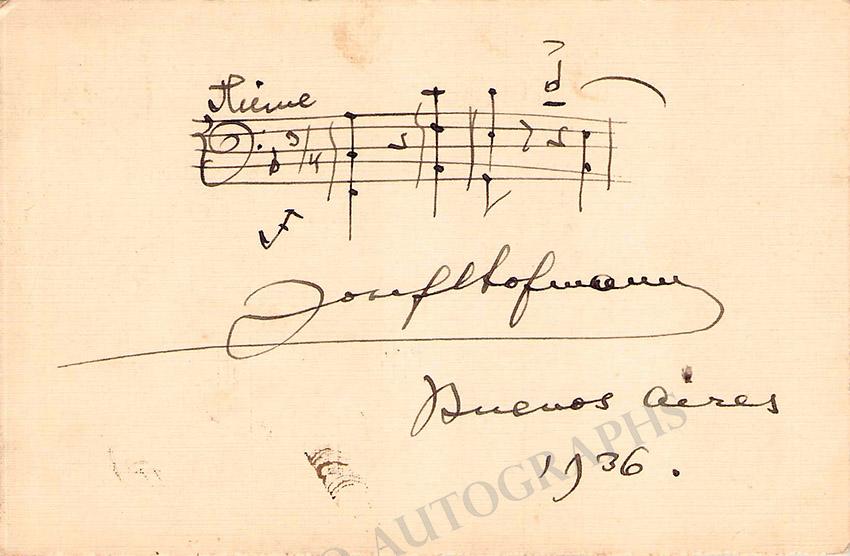 Thème
3/4
Josef Hofmann
Buenos Aires
1936.
AUTOGRAPHS